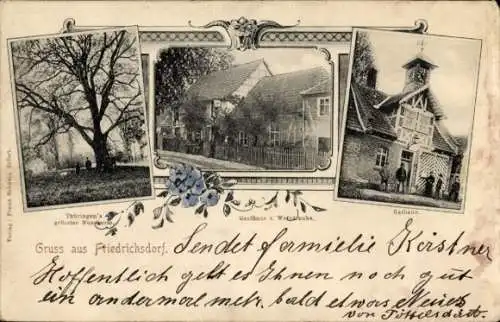 Thüringen's
grösster Nussbaum.
Gasthaus u. Weinstube.
Rathaus.
Gruss aus Friedrichsdorf.
Sendet Familie Kirstner
Hoffentlich geht es Ihnen noch gut
ein andermal mehr. bald etwas Neues
von
Verlag: Franz Erfurt.